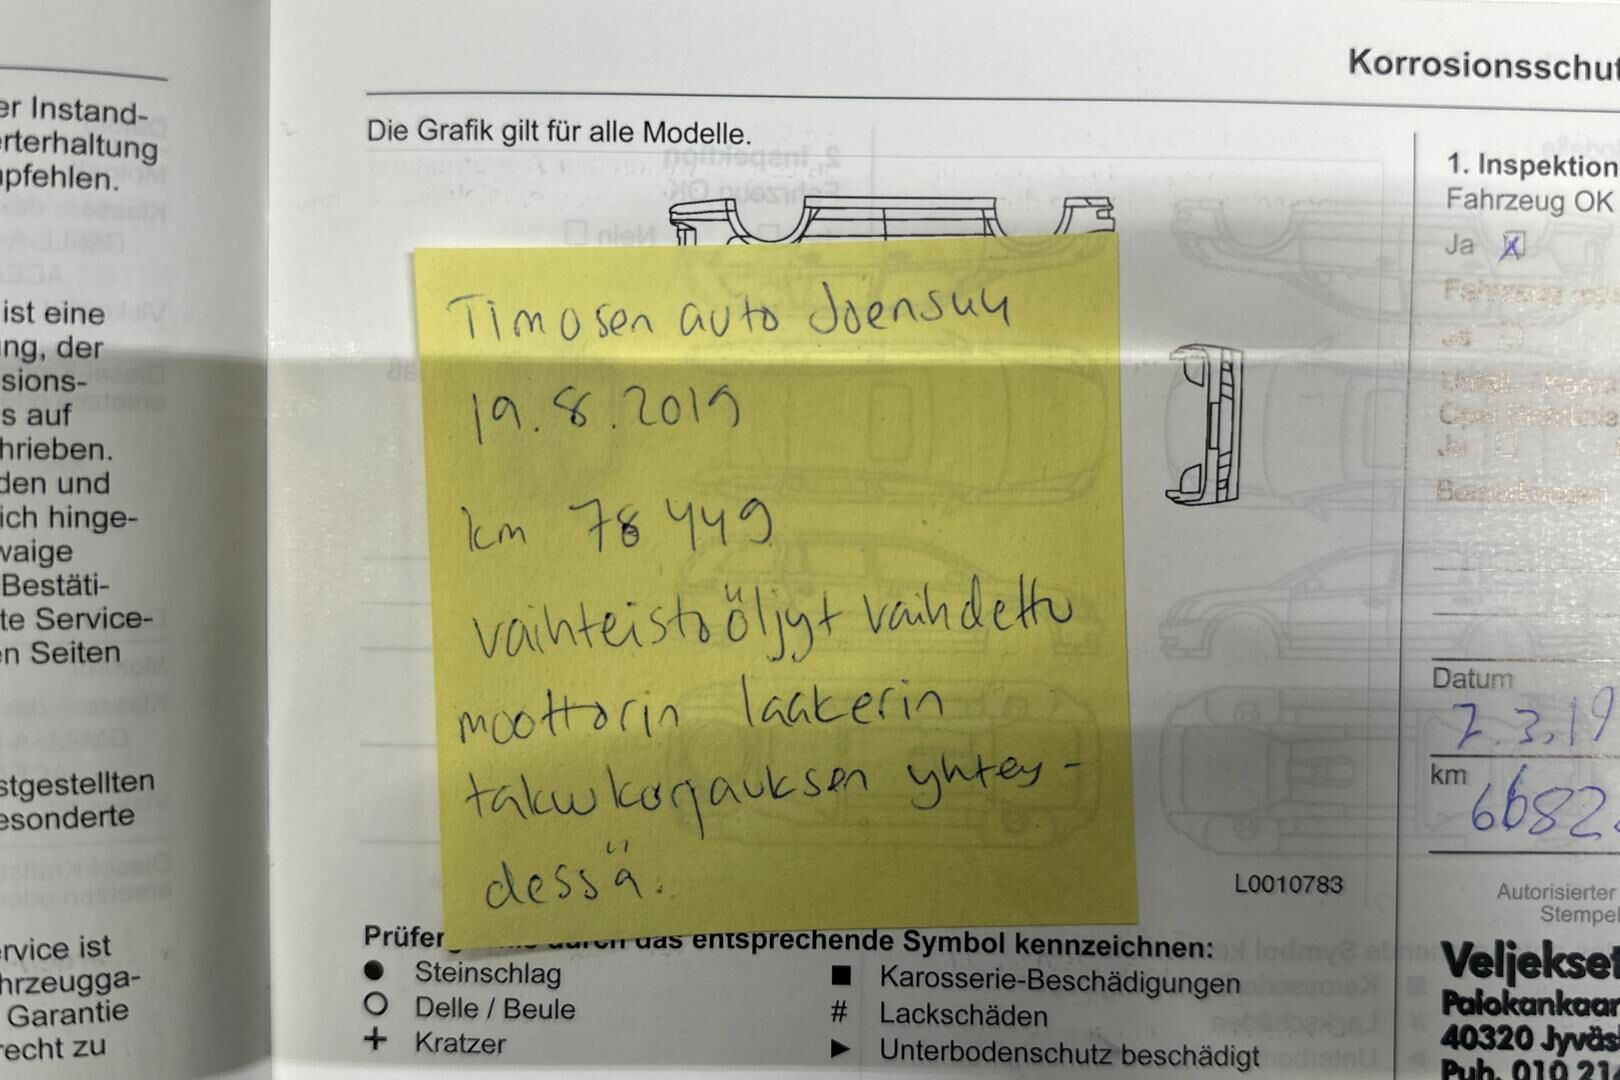 er Instand-
erterhaltung
pfehlen.
ist eine
ng, der
sions-
s auf
hrieben.
den und
ich hinge-
waige
Bestäti-
te Service-
en Seiten
stgestellten
esonderte
ervice ist
hrzeugga-
Garantie
recht zu
Korrosionsschut
Die Grafik gilt für alle Modelle.
Timosen auto Joensuu
19.8.2019
km 78 449
vaihteistoöljyt vaihdettu
moottorin laakerin
takuukorjauksen yhtey-
dessä.
L0010783
Prüfer durch das entsprechende Symbol kennzeichnen:
● Steinschlag
○ Delle / Beule
+ Kratzer
■ Karosserie-Beschädigungen
# Lackschäden
► Unterbodenschutz beschädigt
1. Inspektion
Fahrzeug OK
Ja X
Datum
7.3.19
km
6682
Autorisierter
Stempel
Veljekset
Palokankaan
40320 Jyväs
Puh. 010 214